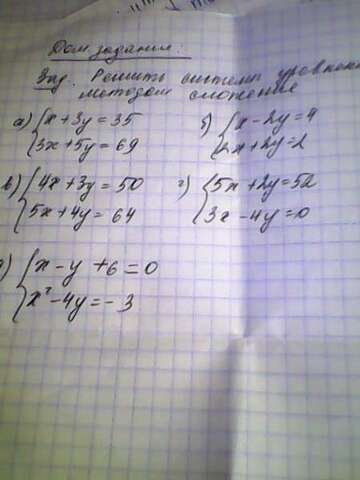 Дом. задания:
Зад. Решить системы уравнения
методом сложение
а) { x + 3y = 35
3x + 5y = 69
б) { x - 2y = 4
2x + 2y = 2
в) { 4x + 3y = 50
5x + 4y = 64
г) { 5x + 2y = 52
3x - 4y = 0
) { x - y + 6 = 0
x² - 4y = - 3